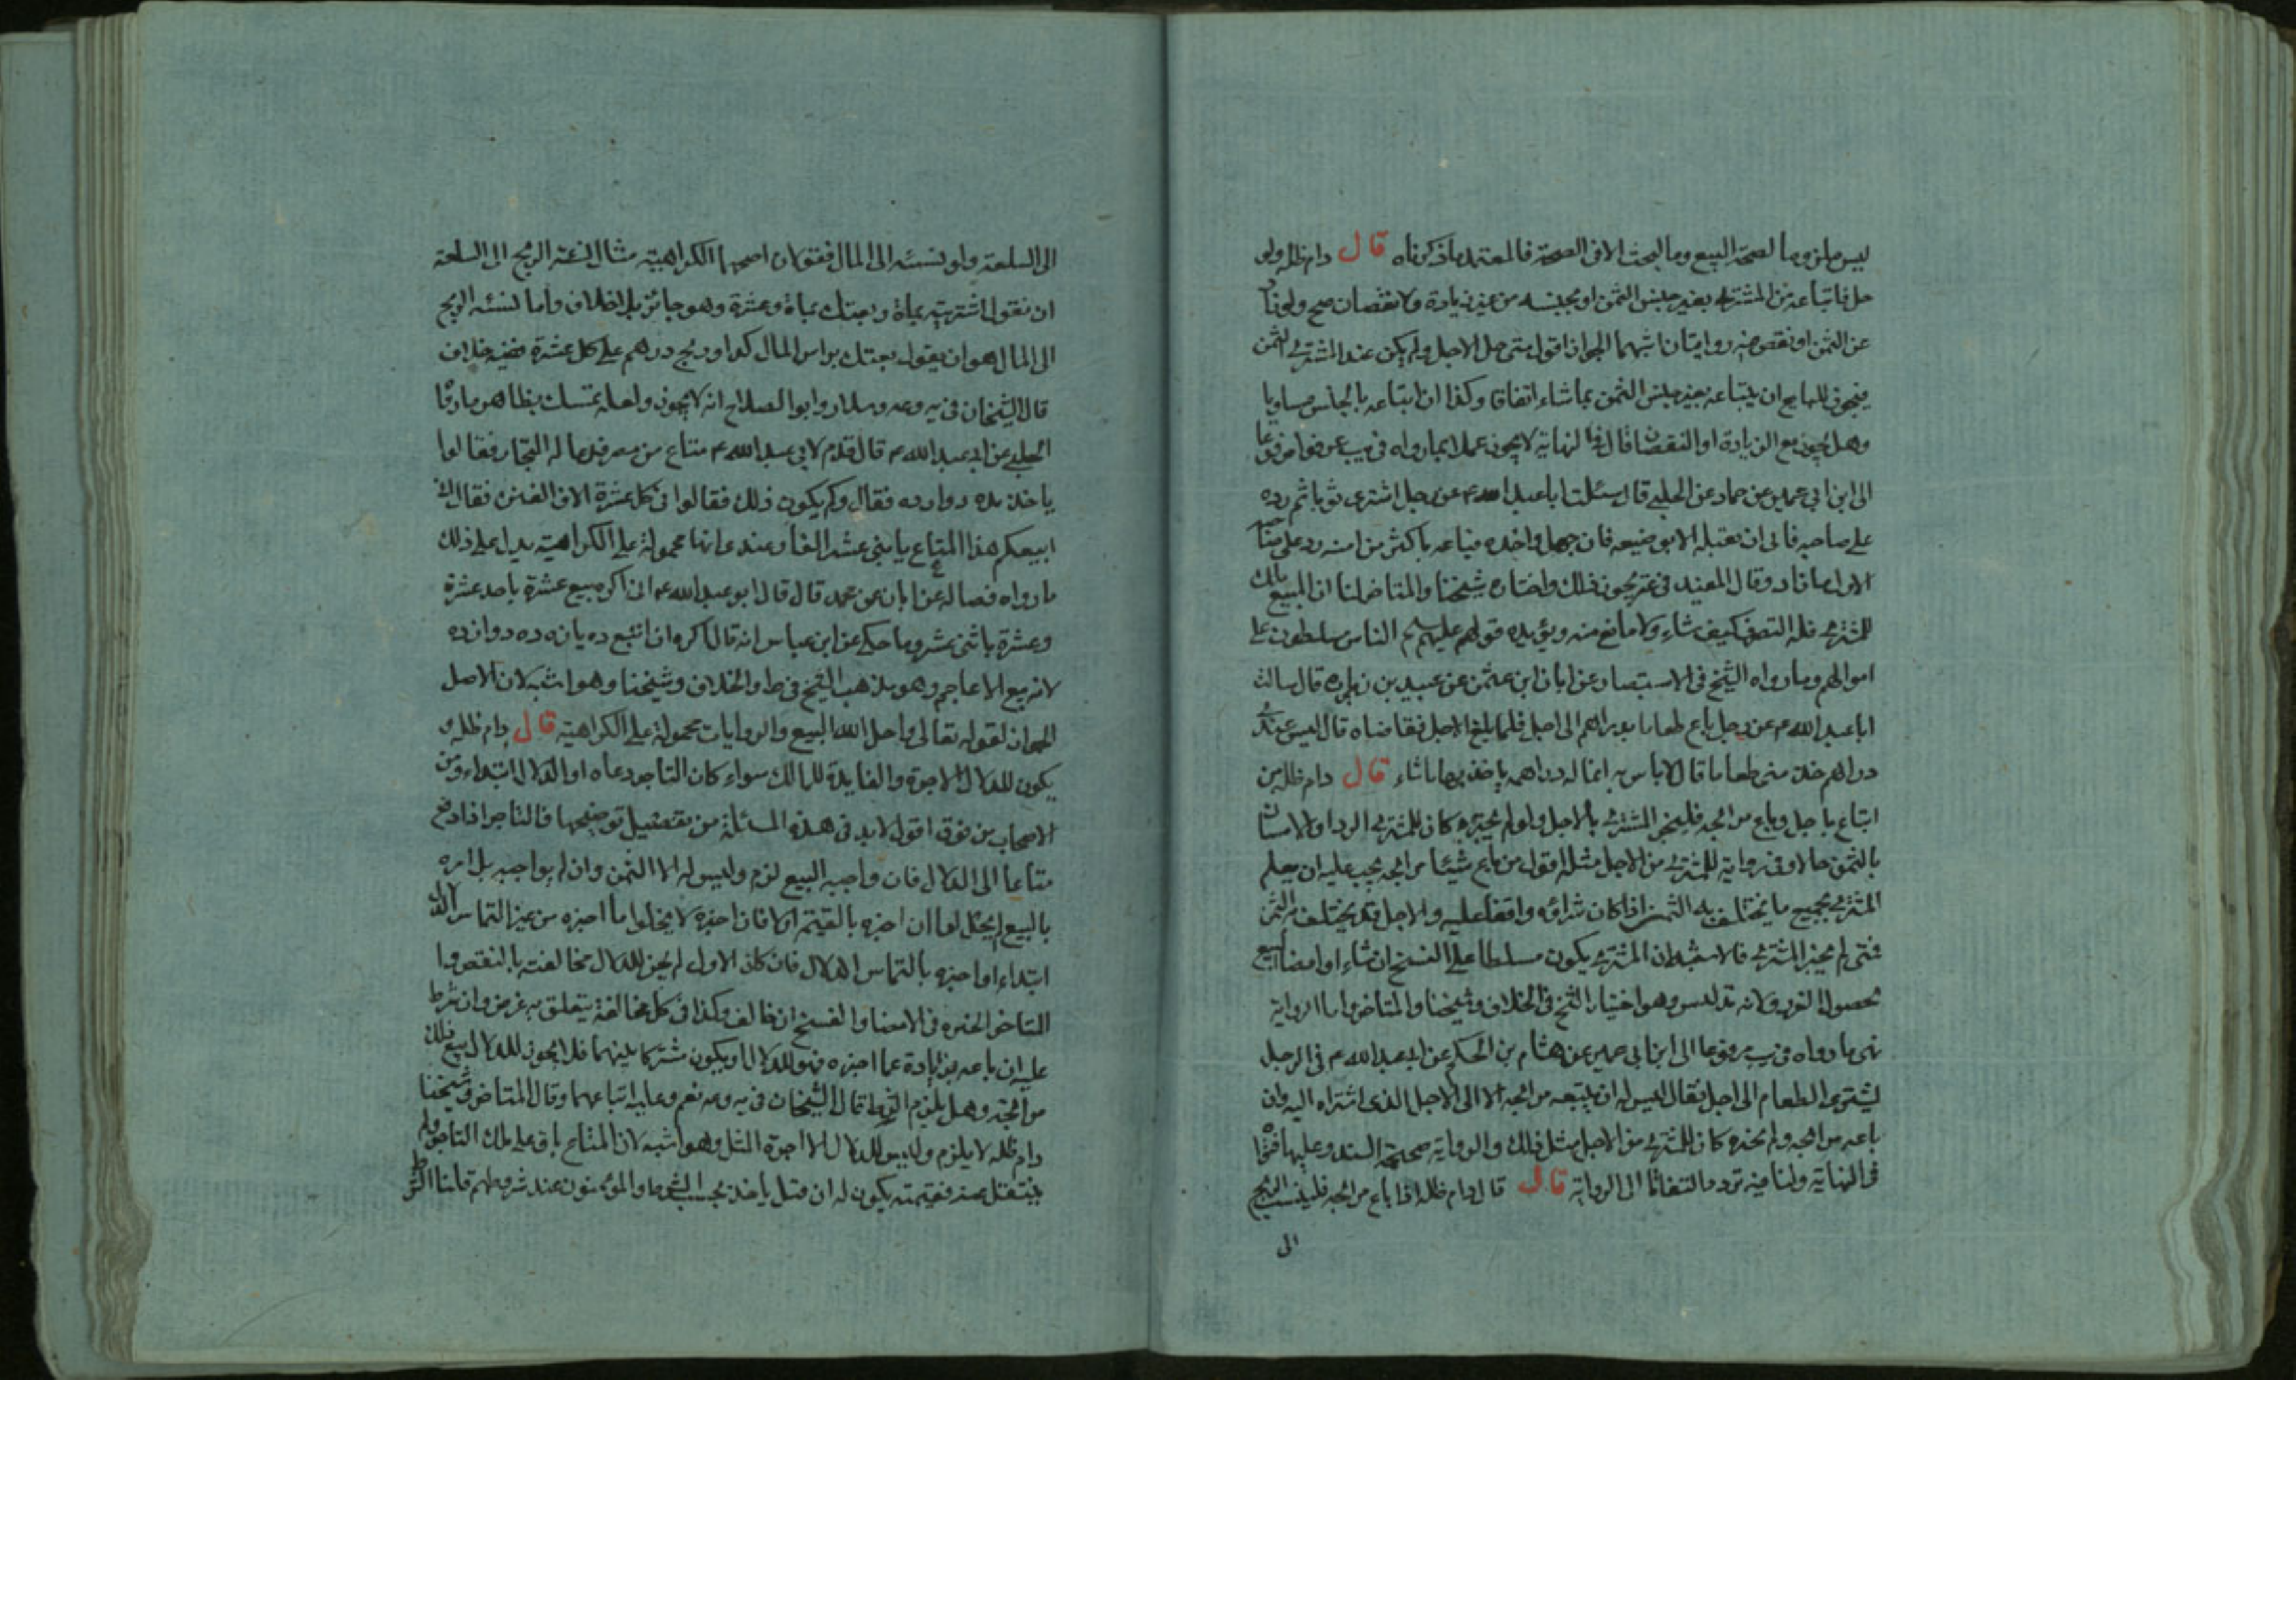 ليس ملزوما لصحة البيع وما البحث الا في الصحة فالمعتمد ما ذكرناه قال دام ظله ولو
حل فابتاعه من المشتري بغير جنس الثمن او بجنسه من غير زيادة ولا نقصان صح ولو زاد
عن الثمن او نقص ففيه روايتان اشبههما الجواز اقول متى حل الاجل ولم يكن عند المشتري الثمن
فيجوز للبايع ان يبتاعه بغير جنس الثمن بما شاء اتفاقا وكذا ان ابتاعه بالجنس مساويا
وهل يجوز مع الزيادة او النقصان قال في النهاية لا يجوز عملا بما رواه في يب مرفوعا
الى ابن ابي عمير عن حماد عن الحلبي قال سئلت ابا عبد الله ع عن رجل اشترى ثوبا ثم رده
على صاحبه فابى ان يقبله الا بوضيعه فان جهل واخذه فباعه باكثر من ثمنه رد على صاحبه
الاول ما زاد وقال المفيد في يجوز ذلك واختاره شيخنا والمتاخر لنا ان المبيع ملك
للمشتري فله التصرف كيف شاء ولا مانع منه ويؤيده قولهم عليهم السلم الناس مسلطون على
اموالهم وما رواه الشيخ في الاستبصار عن ابان ابن عثمن عن عبيد بن زراره قال سالت
ابا عبد الله ع عن رجل باع طعاما بدراهم الى اجل فلما بلغ الاجل تقاضاه قال ليس عندي
دراهم خذ مني طعاما قال لا باس به انما له دراهمه ياخذ بها ما شاء قال دام ظله من
ابتاع باجل وباع مرابحه فليخبر المشتري بالاجل ولو لم يخبره كان للمشتري الرد او الامساك
بالثمن حالا وفي رواية للمشتري من الاجل مثله اقول من باع شيئا مرابحه يجب عليه ان يعلم
المشتري بجميع ما يختلف به الثمن اذا كان شراؤه واقفا عليه والاجل قد يختلف به الثمن
فمتى لم يخبر المشتري فالاشبه ان المشتري يكون مسلطا على الفسخ ان شاء او امضا البيع
لحصول الغرر ولانه تدليس وهو اختيار الشيخ في الخلاف وشيخنا والمتاخر واما الرواية
فهي ما رواه في يب مرفوعا الى ابن ابي عمير عن هشام بن الحكم عن ابي عبد الله ع في الرجل
يشتري الطعام الى اجل فقال ليس له ان يبيعه مرابحه الا الى الاجل الذي اشتراه اليه وان
باعه مرابحه ولم يخبره كان للمشتري من الاجل مثل ذلك والرواية صحيحة السند وعليها فتوى
في النهاية ولنا فيه تردد التفاتا الى الرواية قال قال دام ظله اذا باع مرابحه فلينسب الربح
الى
الى السلعة ولو نسبه الى المال فقولان اصحهما الكراهية مثال نسبة الربح الى السلعة
ان تقول اشتريته بماة وبعتك بماة وعشرة وهو جائز بلا خلاف واما نسبه الربح
الى المال هو ان يقول بعتك براس المال كذا وربح درهم على كل عشرة ففيه خلاف
قال الشيخان في يه وعه وسلار وابو الصلاح انه لا يجوز ولعله تمسك بظاهر ما رواه
الحلبي عن ابي عبد الله ع قال قدم لابي عبد الله ع متاع من مصر فدعا له التجار فقالوا
ياخذه ده دوازده فقال وكم يكون ذلك فقالوا في كل عشرة الاف الفين فقال اني
ابيعكم هذا المتاع باثني عشر الفا وعندها انها محمولة على الكراهية يدل على ذلك
ما رواه فضاله عن ابان عن محمد قال قال ابو عبد الله ع اني اكره بيع عشرة باحد عشرة
وعشرة باثني عشر وما حكي عن ابن عباس انه قال اكره ان ابيع ده يازده ده دوازده
لانه بيع الاعاجم وهو مذهب الشيخ في ط والخلاف وشيخنا وهو اشبه لان الاصل
الجواز لقوله تعالى واحل الله البيع والروايات محمولة على الكراهية قال دام ظله و
يكون للدلال الاجرة والفايدة للمالك سواء كان التاجر دعاه او الدلال ابتداء ومن
الاصحاب من فرق اقول لا بد في هذه المسئلة من تفصيل توضيحها فالتاجر اذا دفع
متاعا الى الدلال فان واجبه البيع لزم وليس له الا الثمن وان لم يواجبه بل امره
بالبيع لم يخل اما ان اخبره بالقيمة او لا فان اخبره لا يخلوا ما اخبره من غير التماس الدلال
ابتداء او اخبره بالتماس الدلال فان كان الاول لم يجز للدلال مخالفته بالنقص و
للتاجر الخيره في الامضا والفسخ ان خالف وكذا في كل مخالفة يتعلق به غرض وان شرط
عليه ان باعه بزيادة عما اخبره فهو للدلال او يكون مشتركا بينهما فلا يجوز للدلال بيع ذلك
مرابحة وهل يلزم الشرط قال الشيخان في يه وعه نعم وعليه اتباعهما وقال المتاخر وشيخنا
دام ظله لا يلزم وليس للدلال الا اجرة المثل وهو اشبه لان المتاع باق على ملك التاجر ولم
ينتقل عنه فقيمته يكون له ان قيل ياخذ بحسب الشرط والمؤمنون عند شروطهم قلنا الشرط